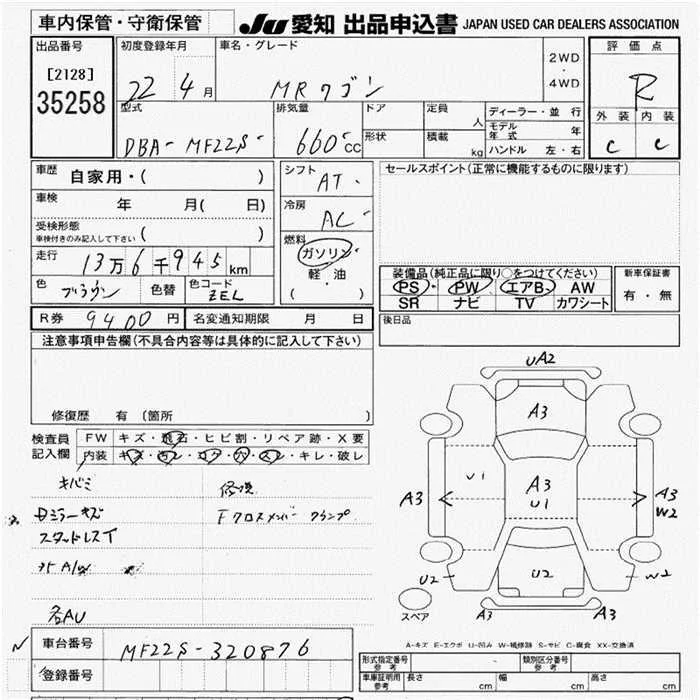 車内保管・守衛保管
JU 愛知 出品申込書 JAPAN USED CAR DEALERS ASSOCIATION
出品番号 初度登録年月 車名・グレード 2WD・4WD 評価点
[2128]
35258
22 4月 MRワゴン R
型式 排気量 ドア 定員 人 ディーラー・並行 外装 内装
DBA-MF22S 660cc 形状 積載 kg モデル年式 年 C C
ハンドル 左・右
車歴 自家用・( ) シフト AT セールスポイント(正常に機能するものに限ります)
車検 年 月( 日) 冷房 AC
受検形態 ( )
車検付きのみ記入して下さい
燃料 ガソリン・軽・油 ( )
走行 13万6千945km
装備品(純正品に限り○をつけてください) 新車保証書
色 ブラウン 色替 色コード ZEL PS・PW・エアB・AW 有・無
SR ナビ TV カワシート
R券 9400円 名変通知期限 月 日 後日品
注意事項申告欄(不具合内容等は具体的に記入して下さい)
修復歴 有 (箇所 )
検査員記入欄 FW キズ・飛石・ヒビ割・リペア跡・X要
内装 キズ・汚レ・コゲ・穴・スレ・キレ・破レ
キバミ 修現
ミラーキズ Fクロスメンバー クランプ
スタッドレスT
A/W
各AU
車台番号 MF22S-320876
登録番号
UA2
A3
U1 A3 U1
A3 A3 W2
U2 U2 W2
スペア A3 A3
A-キズ E-エクボ U-凹み W-補修跡 S-サビ C-腐食 XX-交換済
形式指定番号 参考 類別区分番号 参考
車庫証明用 参考 長さ cm 幅 cm 高さ cm